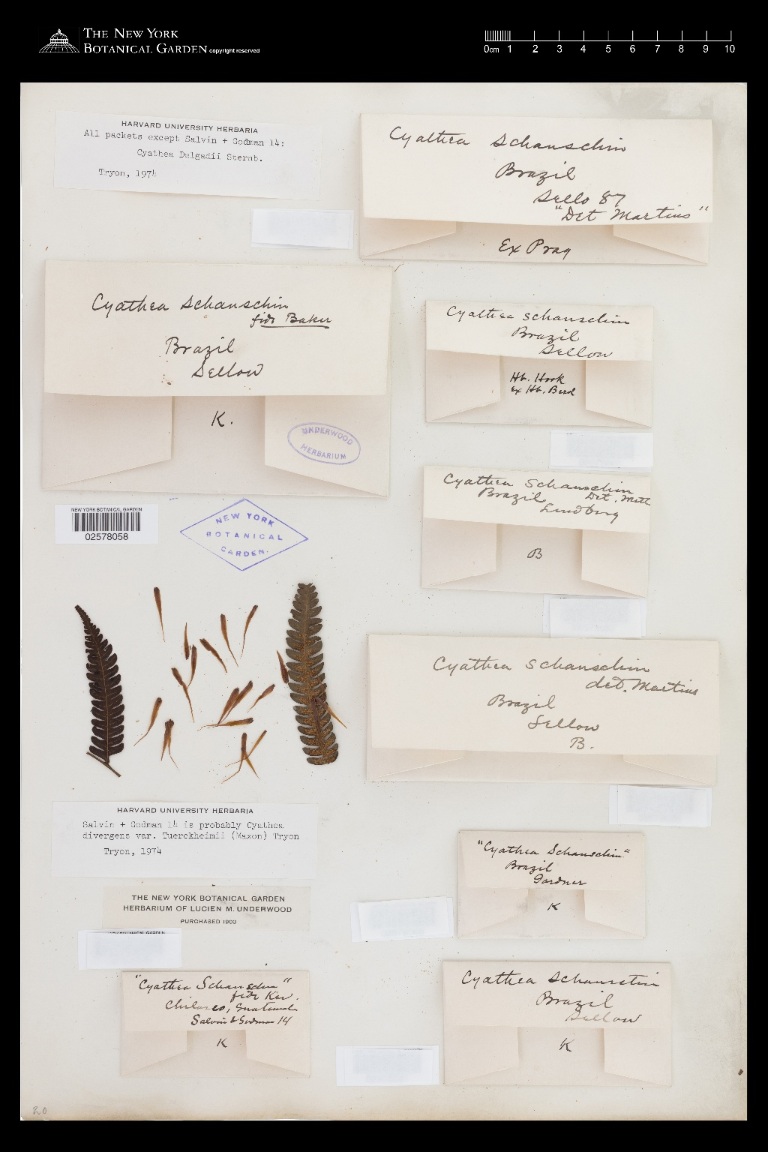 THE NEW YORK
BOTANICAL GARDEN copyright reserved
0cm 1 2 3 4 5 6 7 8 9 10
HARVARD UNIVERSITY HERBARIA
All packets except Salvin + Godman 14:
Cyathea Delgadii Sternb.
Tryon, 1974
Cyathea Schanschin
Brazil
Sello 87
"Det Martius"
Ex Prag
Cyathea Schanschin
fide Baker
Brazil
Sellow
K.
UNDERWOOD
HERBARIUM
Cyathea schanschin
Brazil
Sellow
Hb. Hook
Ex Hb.
Cyathea Schanschin
Brazil Det. Mett
Lindberg
B
NEW YORK BOTANICAL GARDEN
02578058
NEW YORK
BOTANICAL
GARDEN
Cyathea schanschin
det. Martius
Brazil
Sellow
B.
HARVARD UNIVERSITY HERBARIA
Salvin + Godman 14 is probably Cyathea
divergens var. Tuerckheimii (Maxon) Tryon
Tryon, 1974
THE NEW YORK BOTANICAL GARDEN
HERBARIUM OF LUCIEN M. UNDERWOOD
PURCHASED 1909
"Cyathea Schanschin"
Brazil
Gardner
K
"Cyathea Schanschin"
fide Kew.
Guatemala
Salvin & Godman 14
K
Cyathea Schanschin
Brazil
Sellow
K